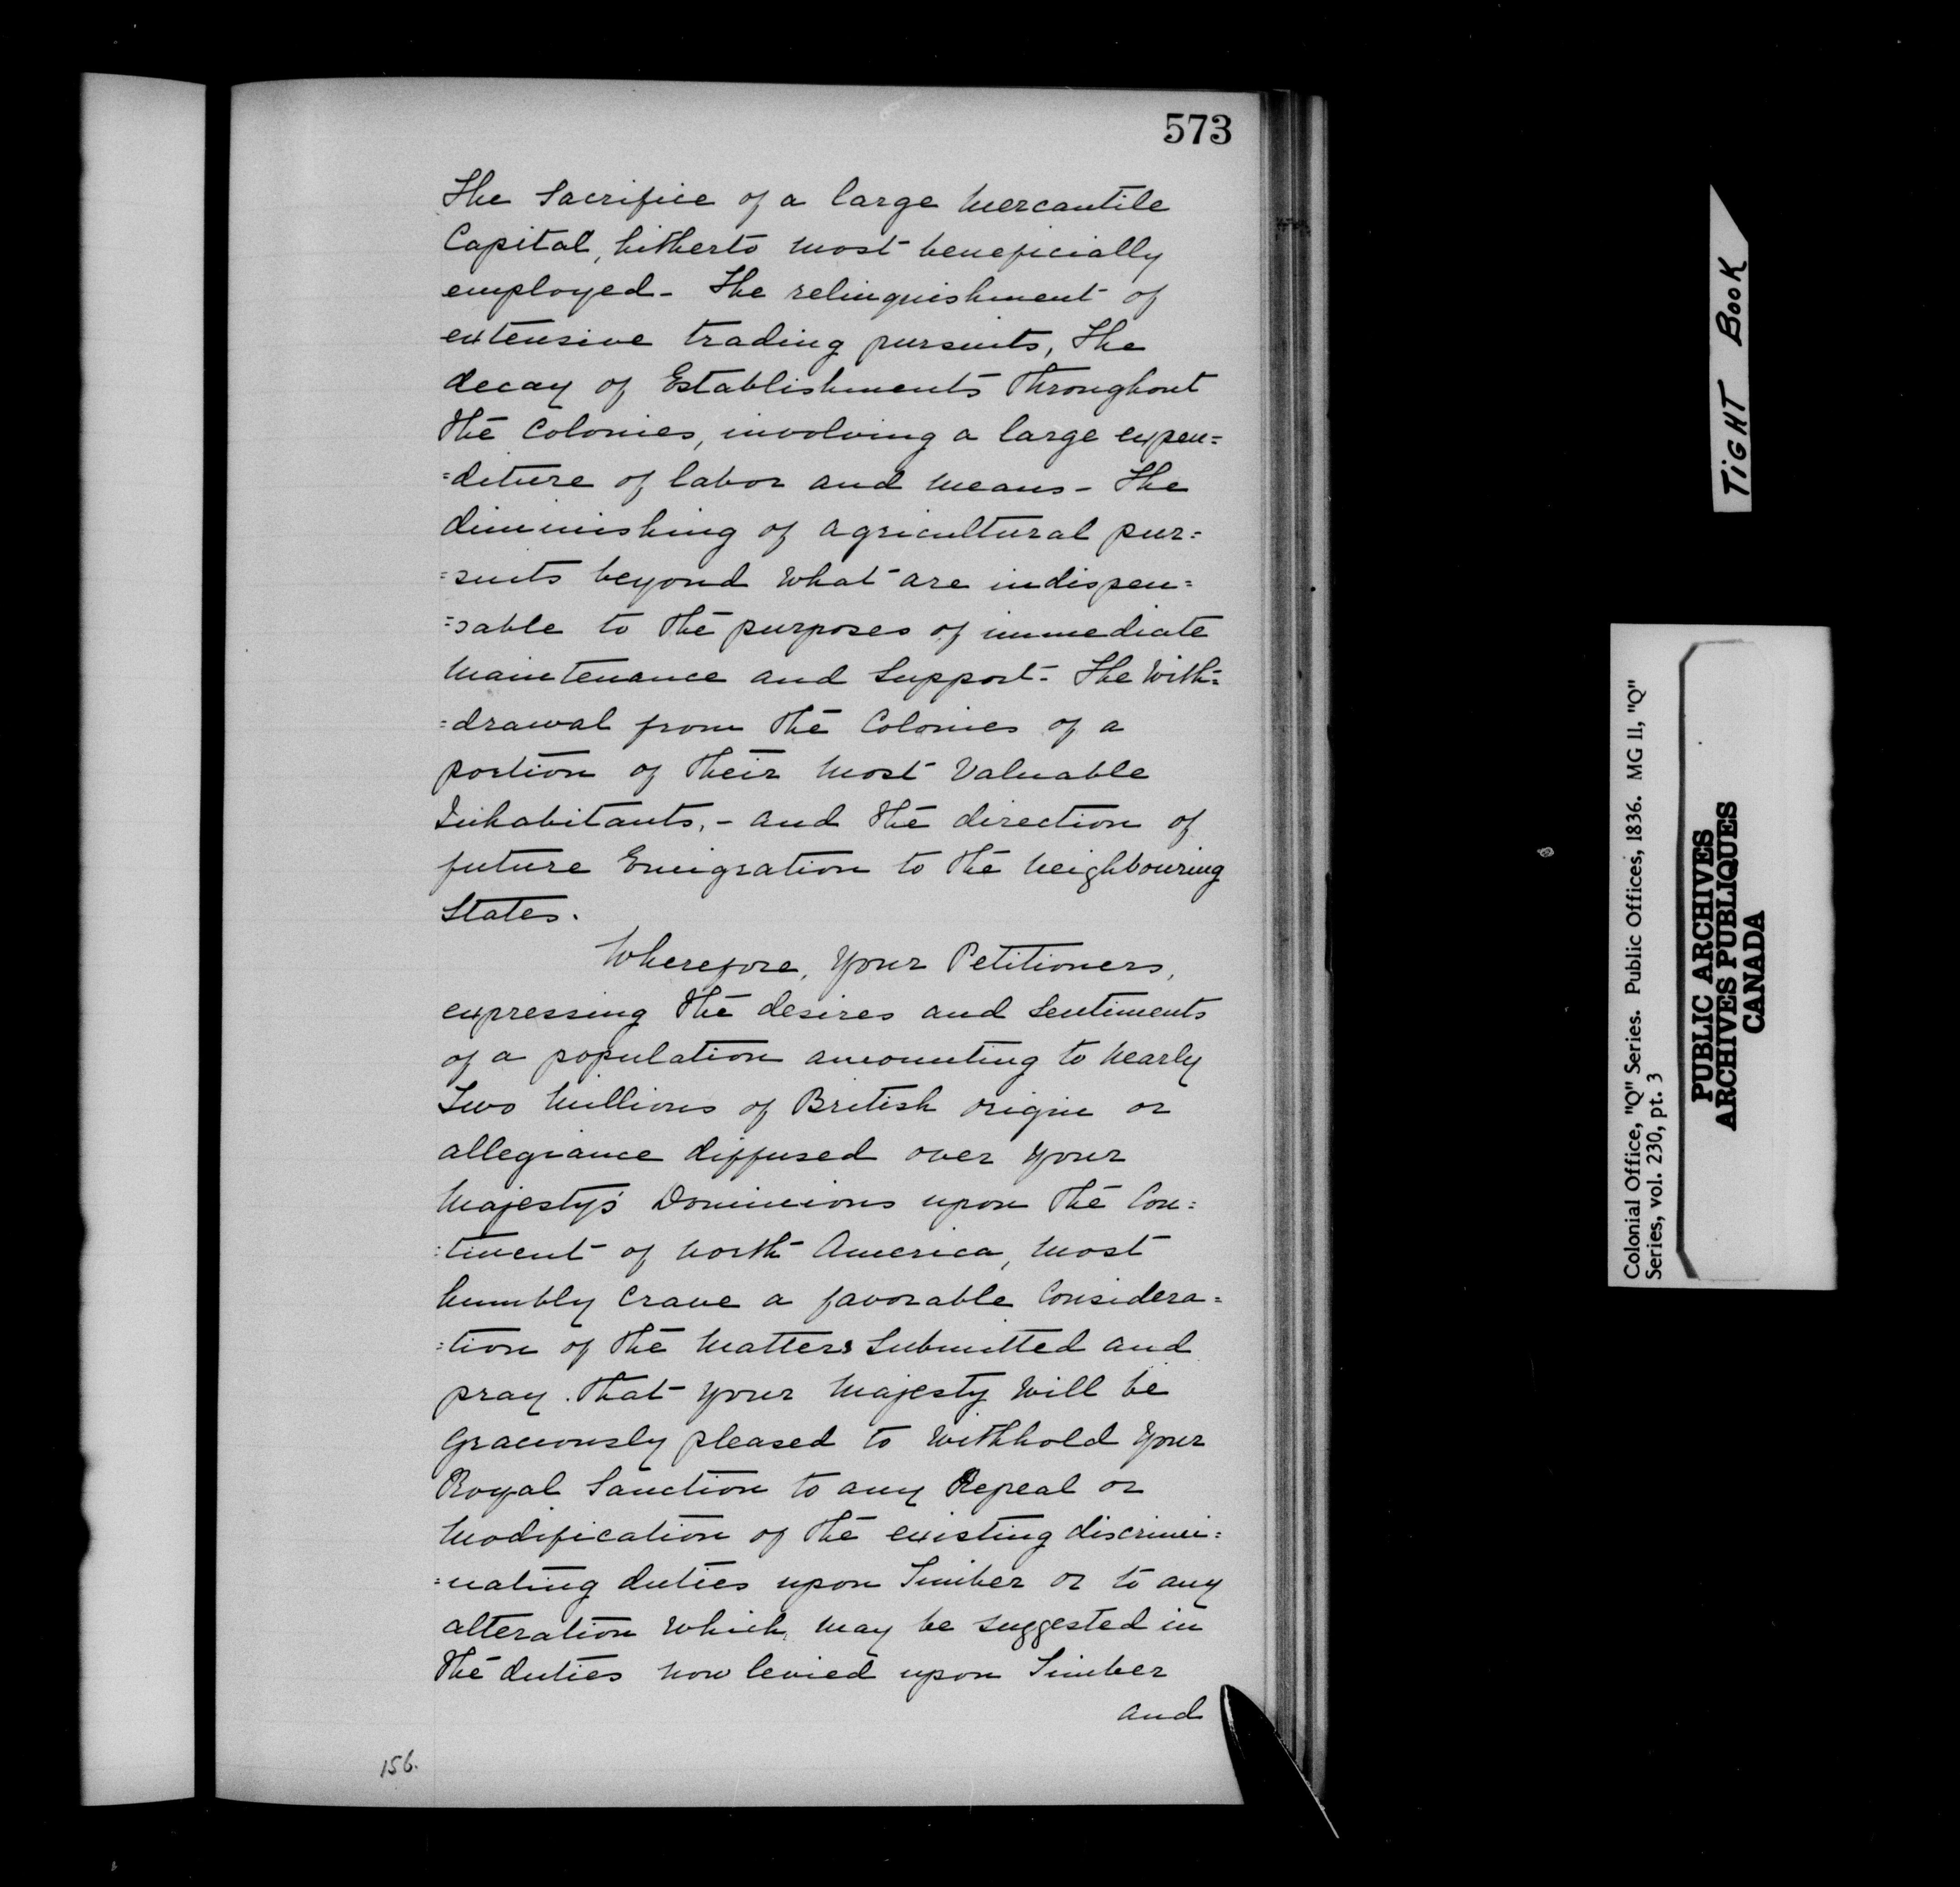 573
The Sacrifice of a large Mercantile
Capital, hitherto most beneficially
employed - The relinquishment of
extensive trading pursuits, The
decay of Establishments throughout
the Colonies, involving a large expen=
=diture of labor and means - The
diminishing of agricultural pur=
=suits beyond what are indispen=
=sable to the purposes of immediate
Maintenance and Support - The With=
=drawal from the Colonies of a
portion of their most Valuable
Inhabitants, - and the direction of
future Emigration to the neighbouring
States.
Wherefore, Your Petitioners,
expressing the desires and Sentiments
of a population amounting to nearly
Two Millions of British origin or
allegiance diffused over Your
Majesty's Dominions upon the Con=
=tinent of North America, most
humbly Crave a favorable Considera=
=tion of the Matters Submitted and
pray that Your Majesty Will be
Graciously pleased to Withhold Your
Royal Sanction to any Repeal or
Modification of the existing discrimi=
=nating duties upon Timber or to any
alteration which may be suggested in
the duties now levied upon Timber
and
156.
TIGHT BOOK
Colonial Office, "Q" Series. Public Offices, 1836. MG 11, "Q"
Series, vol. 230, pt. 3
PUBLIC ARCHIVES
ARCHIVES PUBLIQUES
CANADA